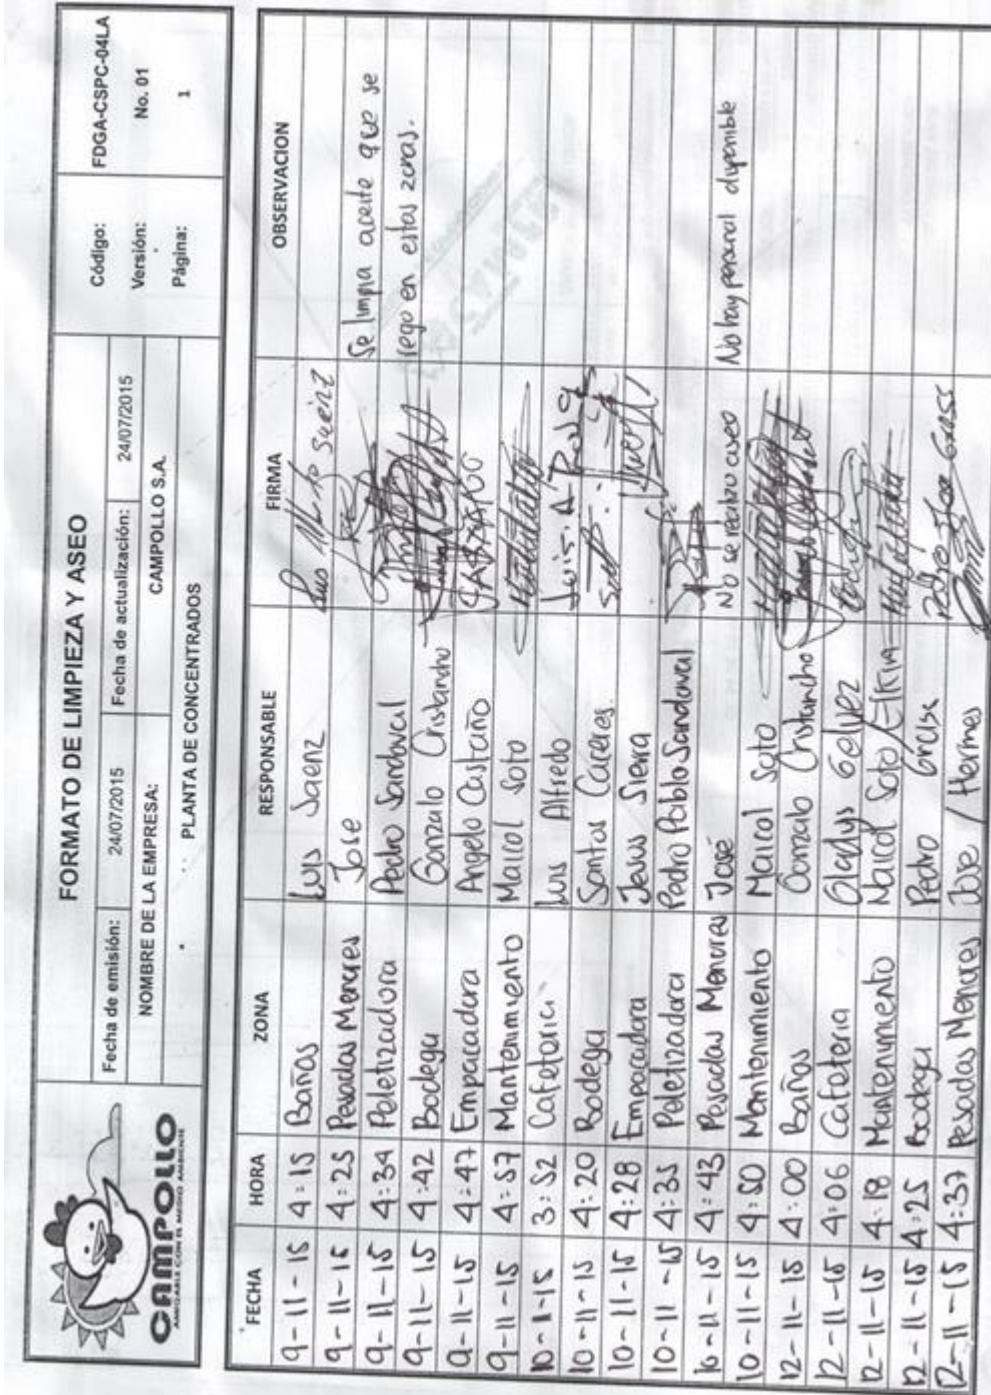 CAMPOLLO
AMIGABLE CON EL MEDIO AMBIENTE
FORMATO DE LIMPIEZA Y ASEO
Fecha de emisión: 24/07/2015 Fecha de actualización: 24/07/2015
NOMBRE DE LA EMPRESA: CAMPOLLO S.A.
PLANTA DE CONCENTRADOS
Código: FDGA-CSPC-04LA
Versión: No. 01
Página: 1
FECHA HORA ZONA RESPONSABLE FIRMA OBSERVACION
9-11-15 4:15 Baños Luis Saenz Luis Saenz
9-11-15 4:25 Pesadas Menores Jose Se limpia aceite que se
9-11-15 4:34 Peletizadora Pedro Sandoval rego en estas zonas.
9-11-15 4:42 Bodega Gonzalo Cristancho
9-11-15 4:47 Empacadora Angelo Castaño
9-11-15 4:57 Mantenimiento Maicol Soto
10-1-15 3:52 Cafeteria Luis Alfredo Luis A
10-11-15 4:20 Bodega Santos Caceres
10-11-15 4:28 Empacadora Jesus Sierra
10-11-15 4:35 Peletizadora Pedro Pablo Sandoval
10-11-15 4:43 Pesadas Menores José No se realizo aseo No hay personal disponible
10-11-15 4:50 Mantenimiento Maicol Soto
12-11-15 4:00 Baños Gonzalo Cristancho
12-11-15 4:06 Cafeteria Gladys Gelvez
12-11-15 4:18 Mantenimiento Maicol Soto / Elkin
12-11-15 4:25 Bodega Pedro
12-11-15 4:37 Pesadas Menores Jose / Hermes